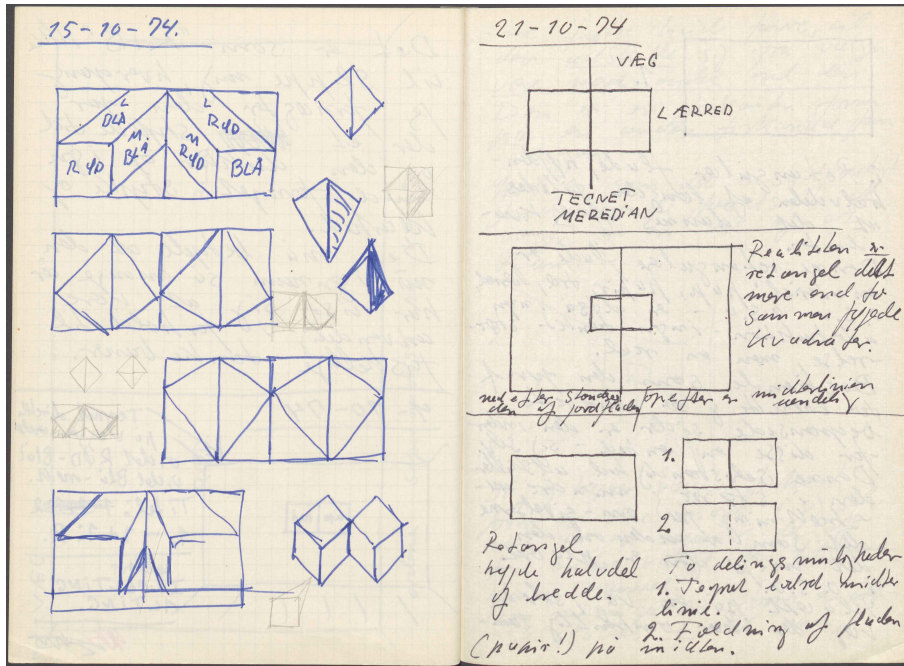 15-10-74.
L
BLÅ
L
RØD
M.
BLÅ
M
RØD
RØD
BLÅ
21-10-74
VÆG
LÆRRED
TEGNET
MEREDIAN
Realiteten er
retangel delt
mere end to
sammen føjede
Kvadrater.
ned efter standses
den af jordfladen
opefter er midterlinien
uendelig
1.
2
Retangel
højde halvdel
af bredde.
To delingsmuligheder
1. Tegnet lodret midter
linie.
2. Foldning af fladen
(papir!) på midten.